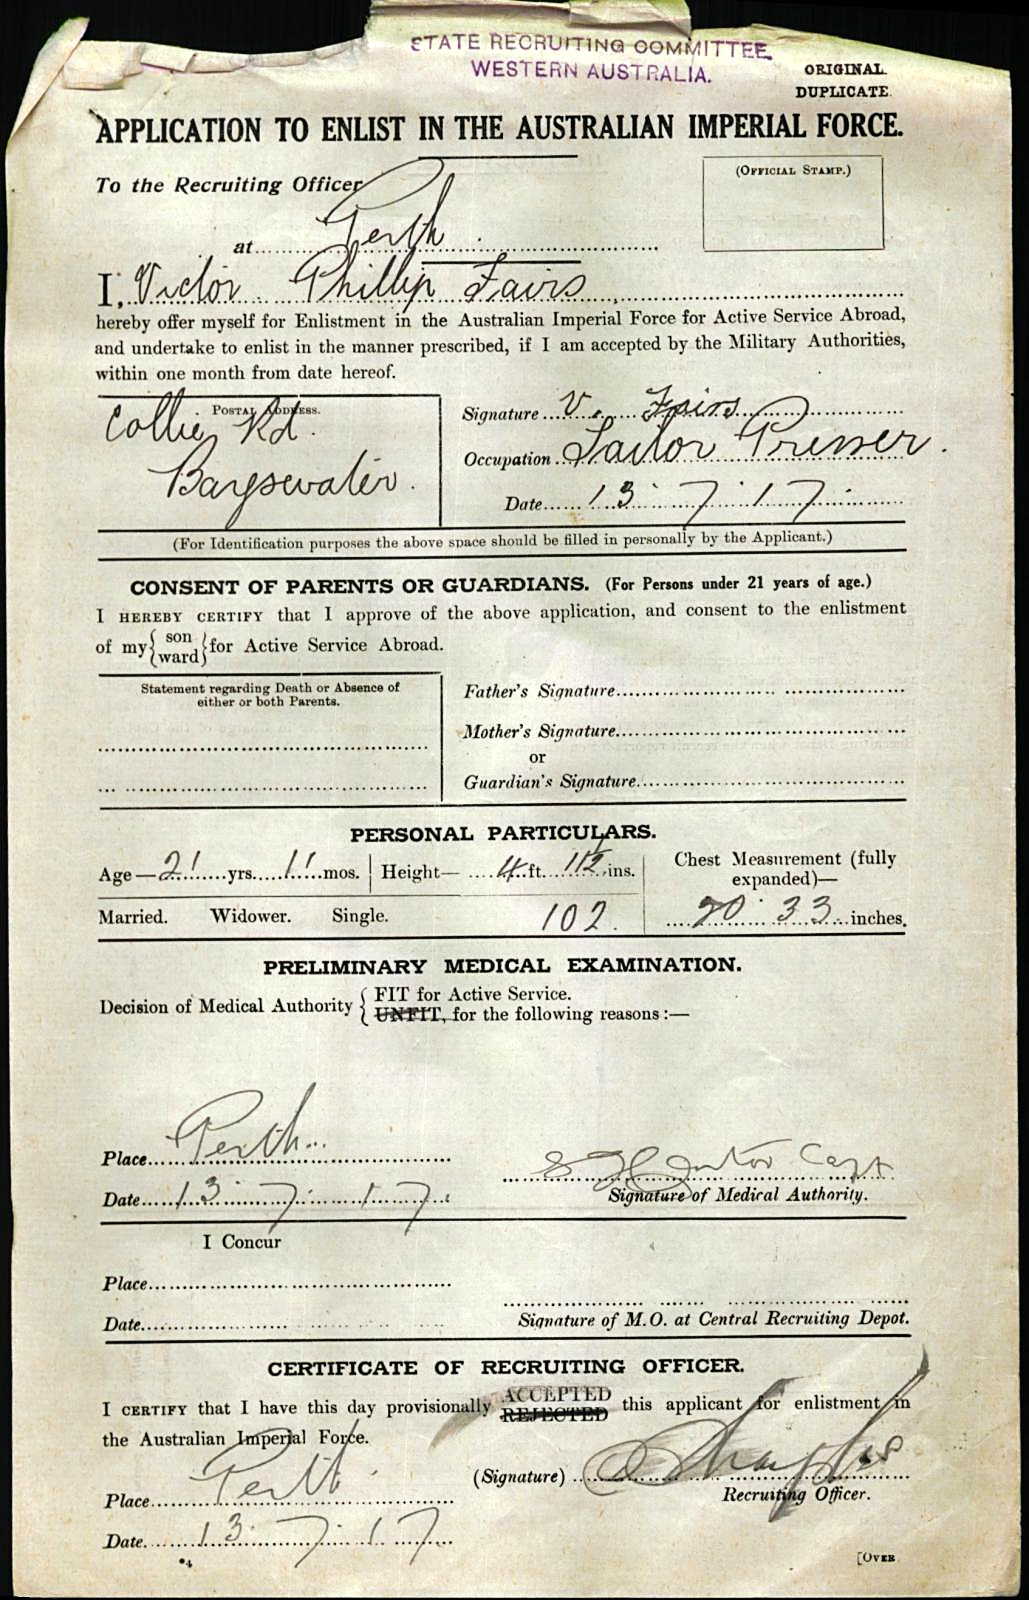 STATE RECRUITING COMMITTEE
WESTERN AUSTRALIA.
ORIGINAL.
DUPLICATE.
APPLICATION TO ENLIST IN THE AUSTRALIAN IMPERIAL FORCE.
To the Recruiting Officer
(OFFICIAL STAMP.)
at Perth
I, Victor Phillip Fairs
hereby offer myself for Enlistment in the Australian Imperial Force for Active Service Abroad,
and undertake to enlist in the manner prescribed, if I am accepted by the Military Authorities,
within one month from date hereof.
POSTAL ADDRESS.
Collie Rd.
Baysewater.
Signature V. Fairs
Occupation Tailor Presser.
Date 13.7.17.
(For Identification purposes the above space should be filled in personally by the Applicant.)
CONSENT OF PARENTS OR GUARDIANS. (For Persons under 21 years of age.)
I HEREBY CERTIFY that I approve of the above application, and consent to the enlistment
of my { son ward } for Active Service Abroad.
Statement regarding Death or Absence of
either or both Parents.
Father's Signature
Mother's Signature
or
Guardian's Signature
PERSONAL PARTICULARS.
Age— 21 yrs. 11 mos. Height— 4 ft. 11½ ins. Chest Measurement (fully
expanded)—
Married. Widower. Single. 102. 33 inches.
PRELIMINARY MEDICAL EXAMINATION.
Decision of Medical Authority { FIT for Active Service.
UNFIT, for the following reasons:—
Place Perth
Date 13.7.17.
Capt
Signature of Medical Authority.
I Concur
Place
Date
Signature of M.O. at Central Recruiting Depot.
CERTIFICATE OF RECRUITING OFFICER.
I CERTIFY that I have this day provisionally ACCEPTED REJECTED this applicant for enlistment in
the Australian Imperial Force.
(Signature)
Recruiting Officer.
Place Perth
Date 13.7.17
*4
[OVER